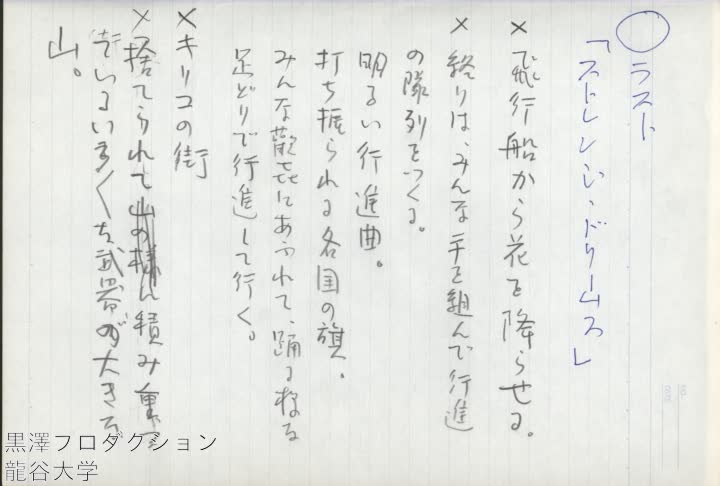 ◯ ラスト
「ストレンジ・ドリームス」
× 飛行船から花を降らせる。
× 終りは、みんな手を組んで行進
の隊列をつくる。
明るい行進曲。
打ち振られる各国の旗。
みんな歓喜にあふれて、踊る様な
足どりで行進して行く。
× キリコの街
× 捨てられて山の様に積み重っ
ているいろくな武器の大きな
山。
黒澤プロダクション
龍谷大学